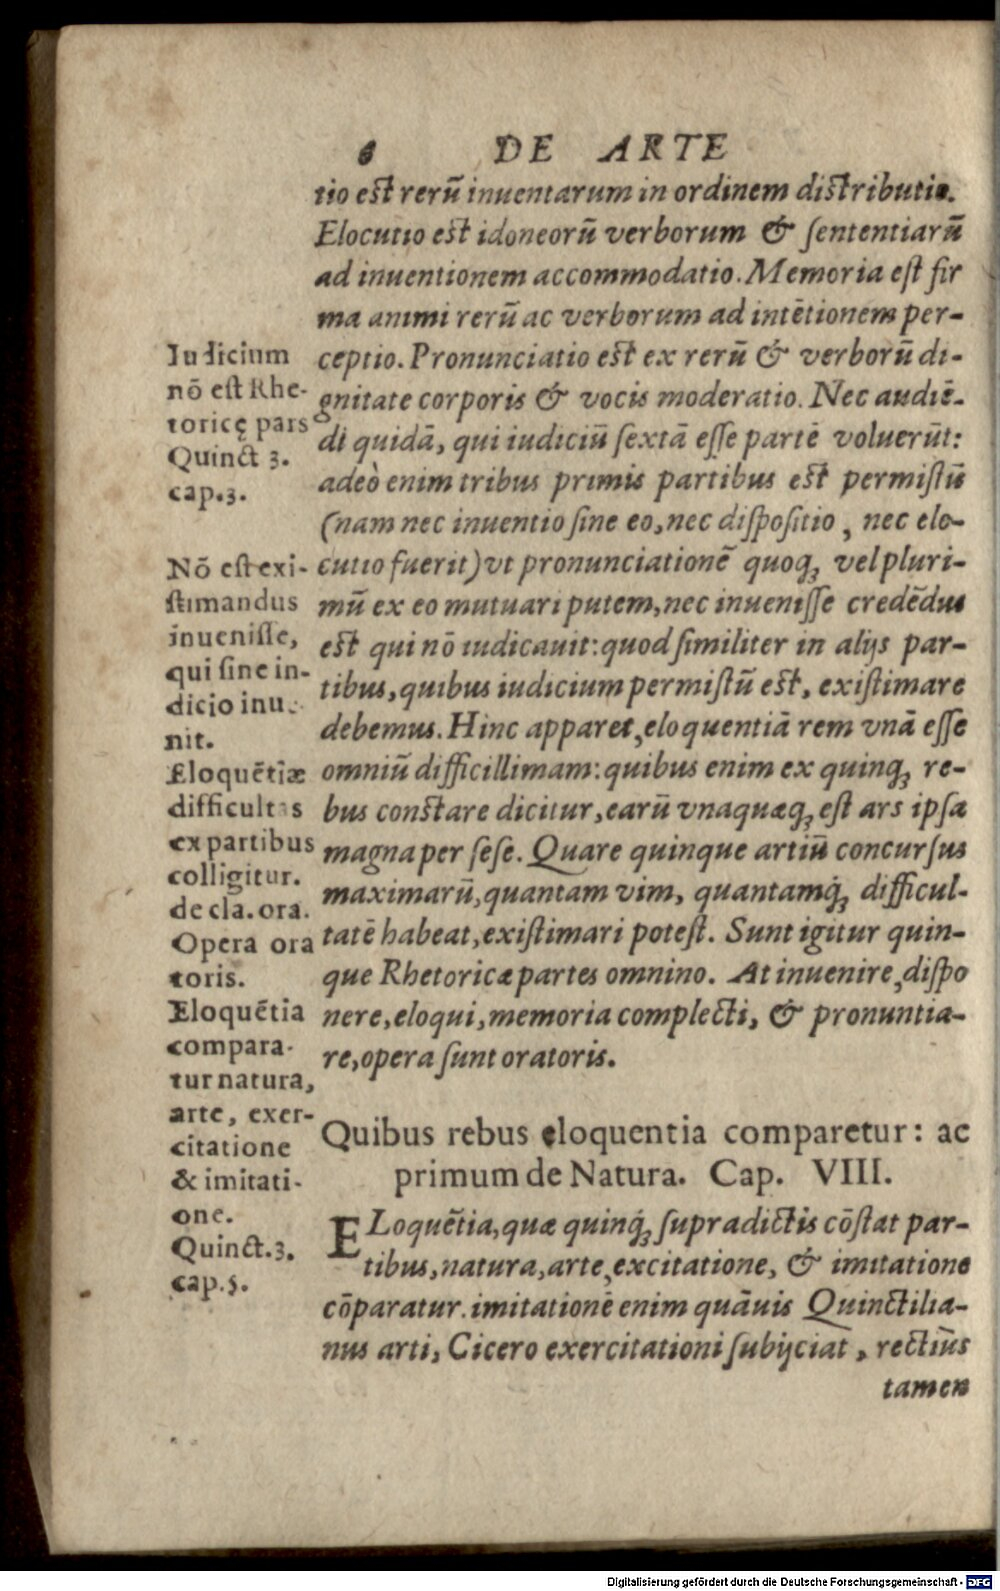 6 DE ARTE
tio est rerũ inuentarum in ordinem distributio.
Elocutio est idoneorũ verborum & sententiarũ
ad inuentionem accommodatio. Memoria est fir
ma animi rerũ ac verborum ad intẽtionem per-
ceptio. Pronunciatio est ex rerũ & verborũ di-
gnitate corporis & vocis moderatio. Nec audiẽ-
di quidã, qui iudiciũ sextã esse partẽ voluerũt:
adeò enim tribus primis partibus est permistũ
(nam nec inuentio sine eo, nec dispositio, nec elo-
cutio fuerit) vt pronunciationẽ quoq; vel pluri-
mũ ex eo mutuari putem, nec inuenisse credẽdus
est qui nõ iudicauit: quod similiter in alijs par-
tibus, quibus iudicium permistũ est, existimare
debemus. Hinc apparet, eloquentiã rem vnã esse
omniũ difficillimam: quibus enim ex quinq; re-
bus constare dicitur, earũ vnaquæq; est ars ipsa
magna per sese. Quare quinque artiũ concursus
maximarũ, quantam vim, quantamq́; difficul-
tatẽ habeat, existimari potest. Sunt igitur quin-
que Rhetoricæ partes omnino. At inuenire, dispo
nere, eloqui, memoria complecti, & pronuntia-
re, opera sunt oratoris.
Iudicium
nõ est Rhe-
toricę pars
Quinct 3.
cap.3.
Nõ est exi-
stimandus
inuenisse,
qui sine in-
dicio inue
nit.
Eloquẽtiæ
difficultas
ex partibus
colligitur.
de cla. ora.
Opera ora
toris.
Eloquẽtia
compara-
tur natura,
arte, exer-
citatione
& imitati-
one.
Quinct. 3.
cap. 5.
Quibus rebus eloquentia comparetur: ac
primum de Natura. Cap. VIII.
ELoquẽtia, quæ quinq́; supradictis cõstat par-
tibus, natura, arte, excitatione, & imitatione
cõparatur. imitationẽ enim quãuis Quinctilia-
nus arti, Cicero exercitationi subijciat, rectiùs
tamen
Digitalisierung gefördert durch die Deutsche Forschungsgemeinschaft - DFG